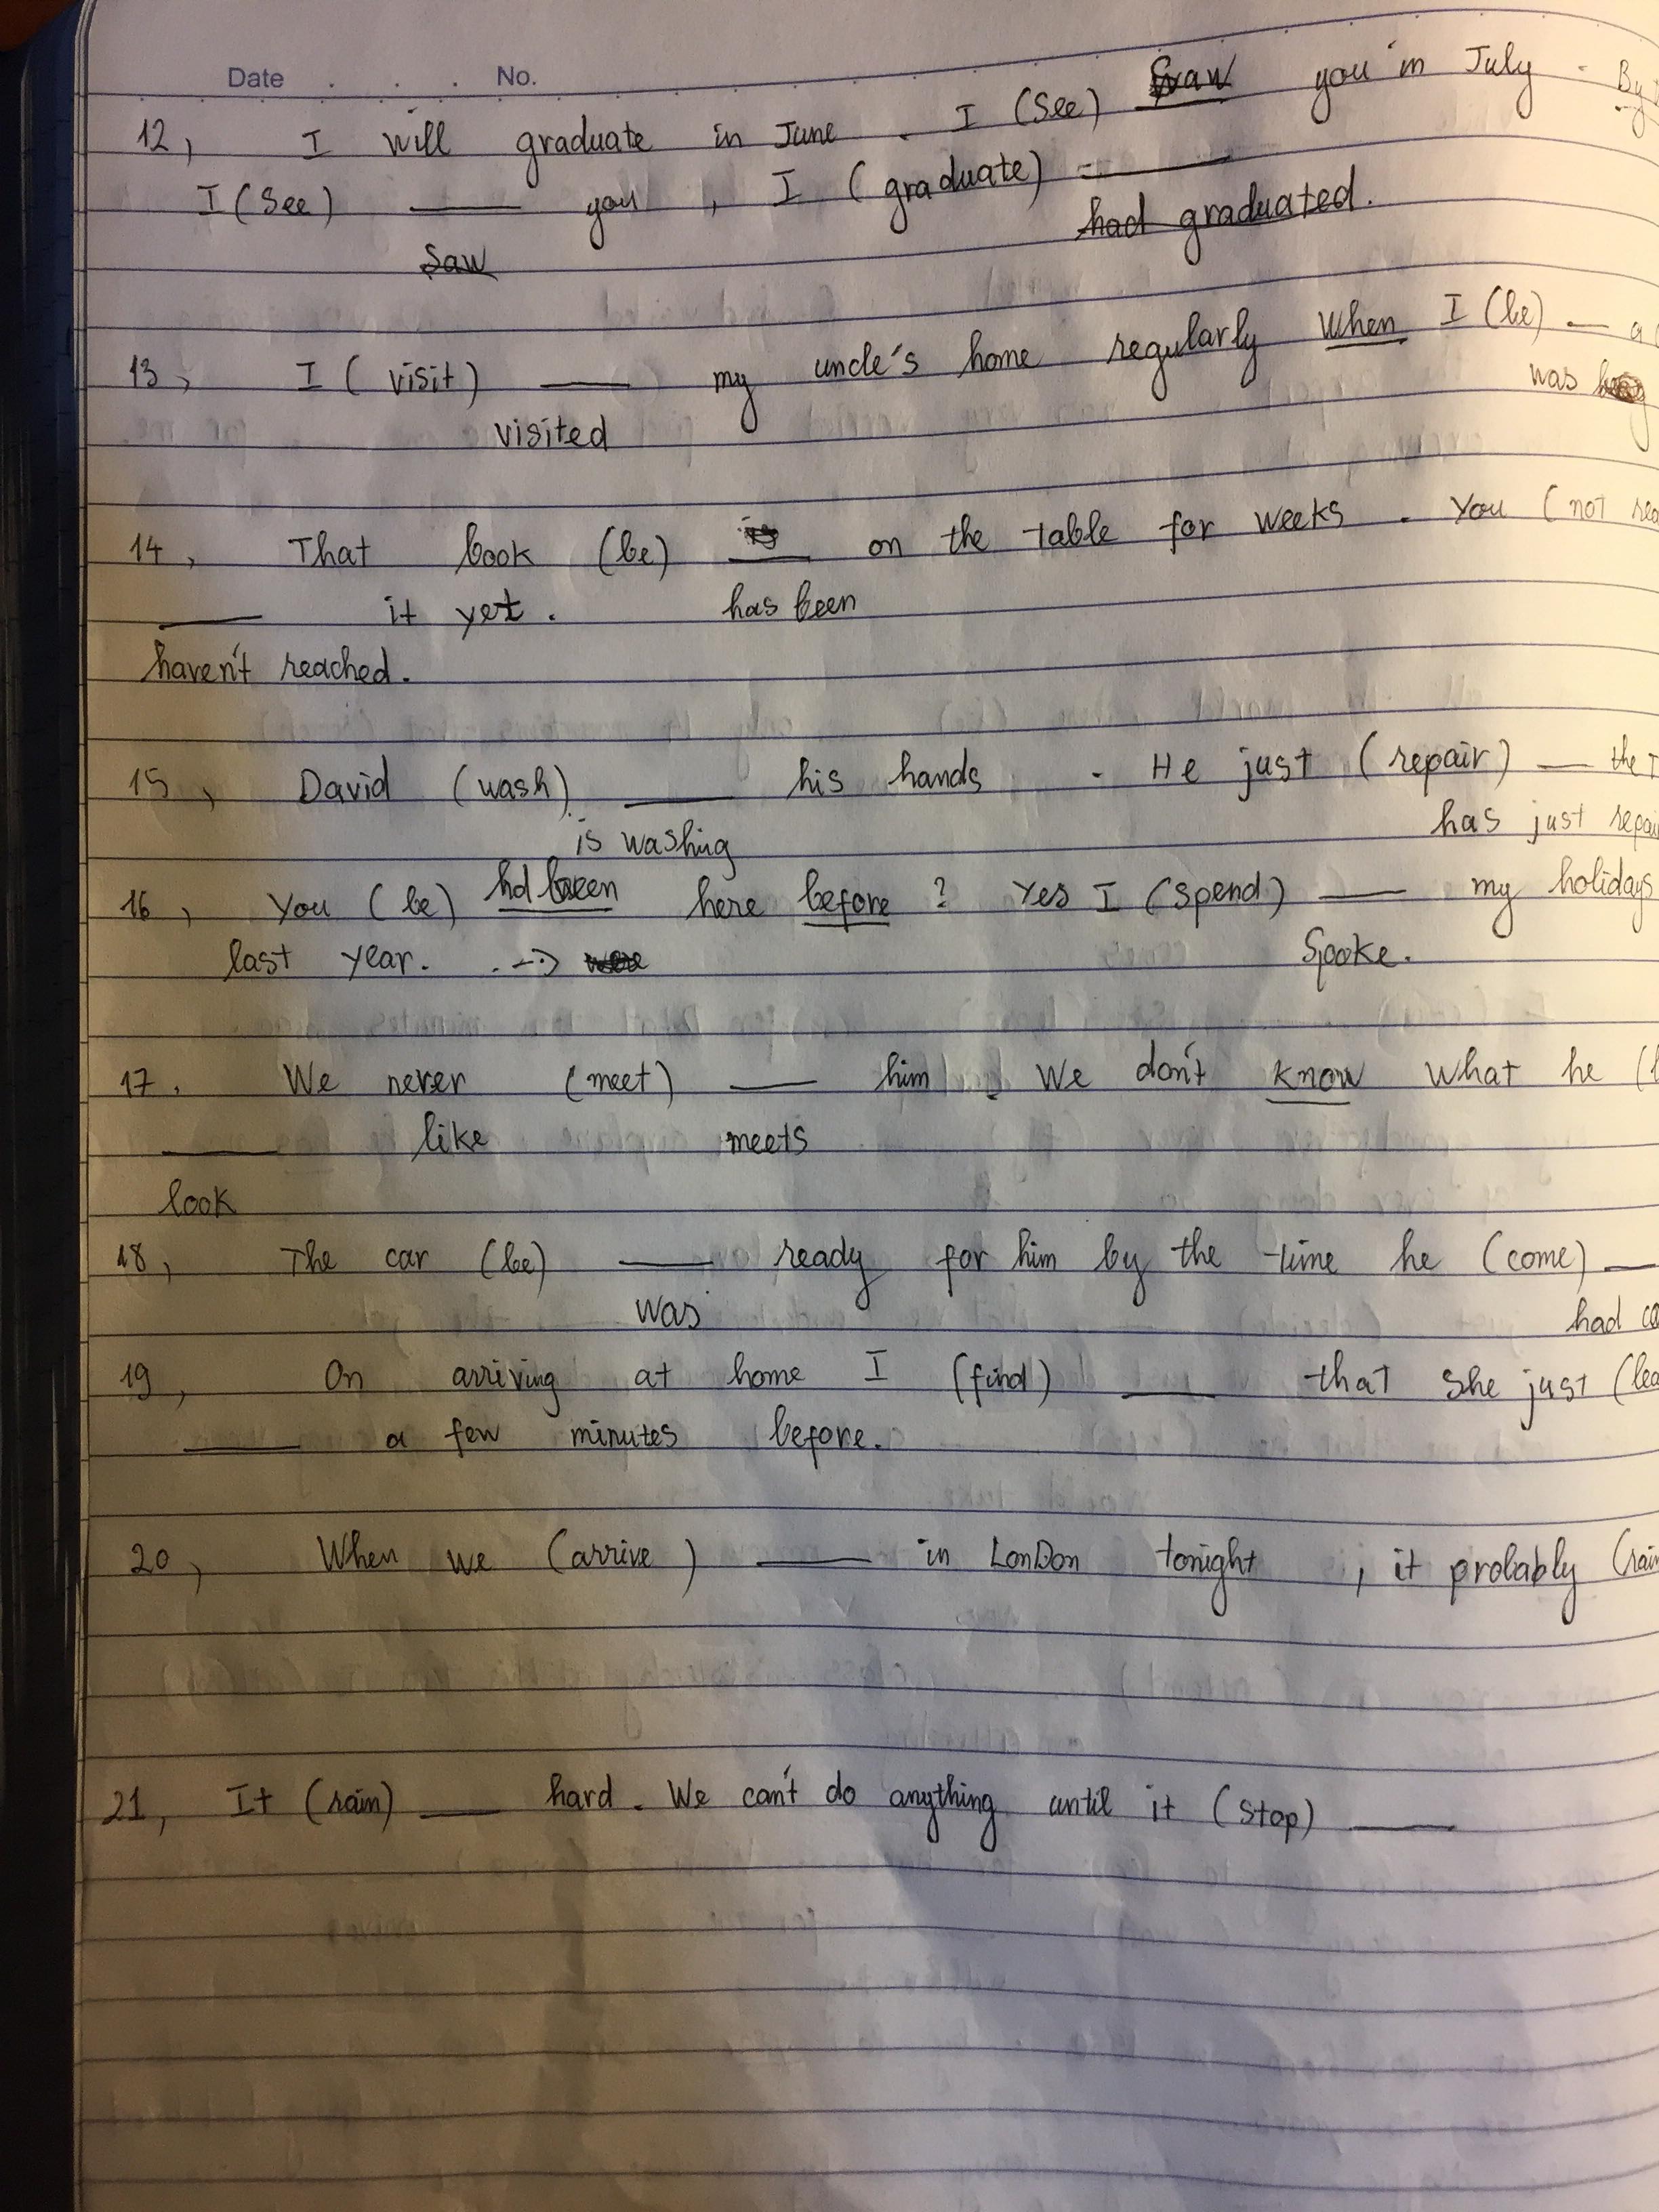 Date No.
12, I will graduate in June . I (See) Saw you in July . By
I (See) ___ you , I (graduate) ___
Saw had graduated.
13, I ( visit) ___ my uncle's home regularly when I (be) ___ a
visited was
14, That book (be) is on the table for weeks . You (not rea
___ it yet . has been
haven't reached.
15, David (wash) ___ his hands . He just (repair) ___ the T
is washing has just repai
16, You (be) hd been here before ? Yes I (spend) ___ my holidays
last year. --> were Spoke.
17. We never (meet) ___ him . We don't know what he (l
___ like meets
look
18, The car (be) ___ ready for him by the time he (come) ___
was had co
19, On arriving at home I (find) ___ that she just (lea
___ a few minutes before.
20, When we (arrive ) ___ in LonDon tonight , it probably (rain
21, It (rain) ___ hard. We can't do anything until it (stop) ___